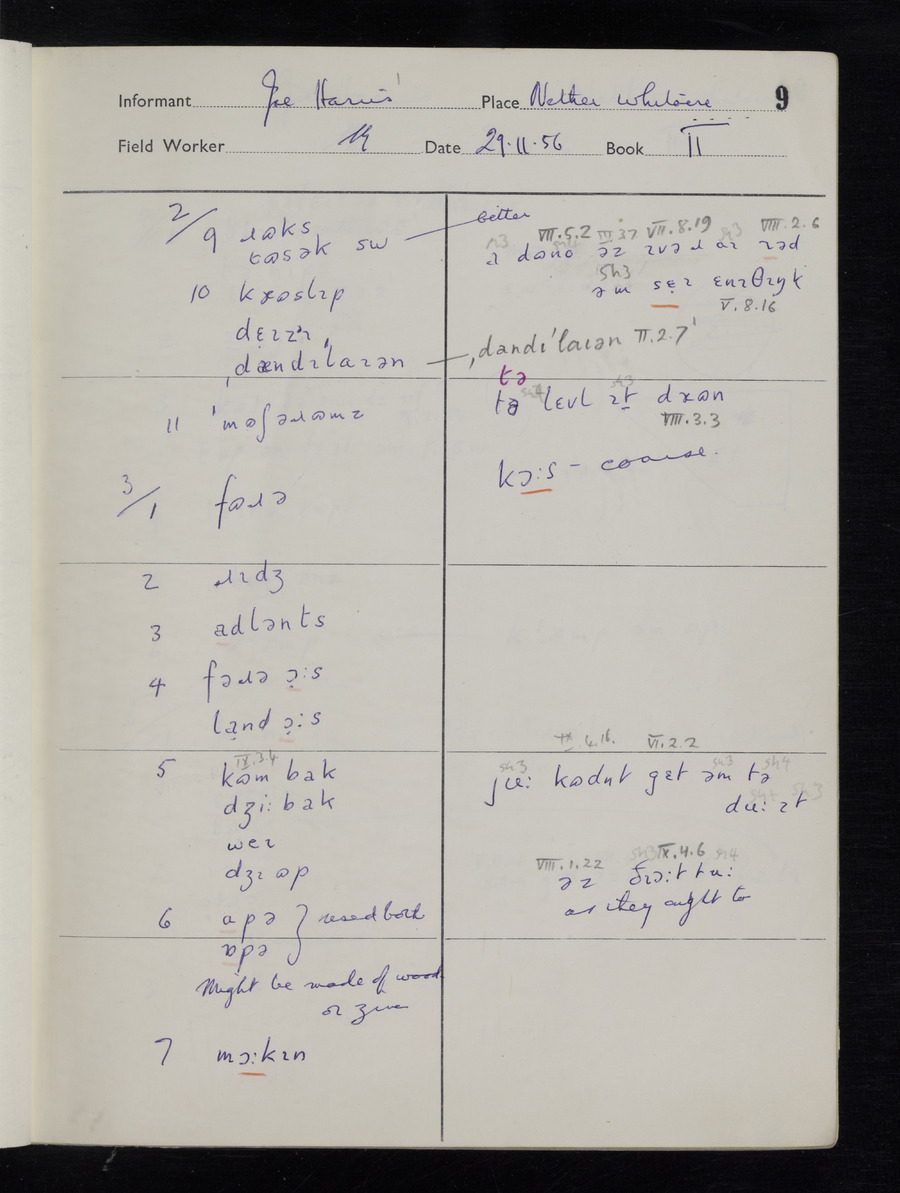 Informant Joe Harris Place Nether Whitacre 9
Field Worker Date 29.11.56 Book II
2/9 ɹɷks
tɷsək sw better
10 kɤɷslɪp
dɛɪzɪ
ˌdændɪˈlaɪən ˌdandɪˈlaɪən II.2.7
11 ˈmɷʃəɹɷmz
3/1 fɷɹə
2 ɹɪdʒ
3 adlənts
4 fəɹə ɔ:s
land ɔ:s
IX.3.4
5 kɷm bak
dʒi: bak
wɛɪ
dʒɪ ɷp
6 ɑpə } used both
ɒpə
Might be made of wood
or zinc
7 mɔ:kɪn
VII.5.2 III.37 VII.8.19 VIII.2.6
dɷno əz
sh3
əm sɛɪ ɛnɪθɪŋk
V.8.16
tə
tə lɛvl ɪt dɤɷn
VIII.3.3
kɔ:s - coarse.
IX.4.16. VI.2.2
sh3 sh3 sh4
jʉ: kɷdnt gɛt əm tə
dʉ: ɪt
VIII.1.22 sh3 IX.4.6 sh4
əz ðɪɔ:t tu:
as they ought to